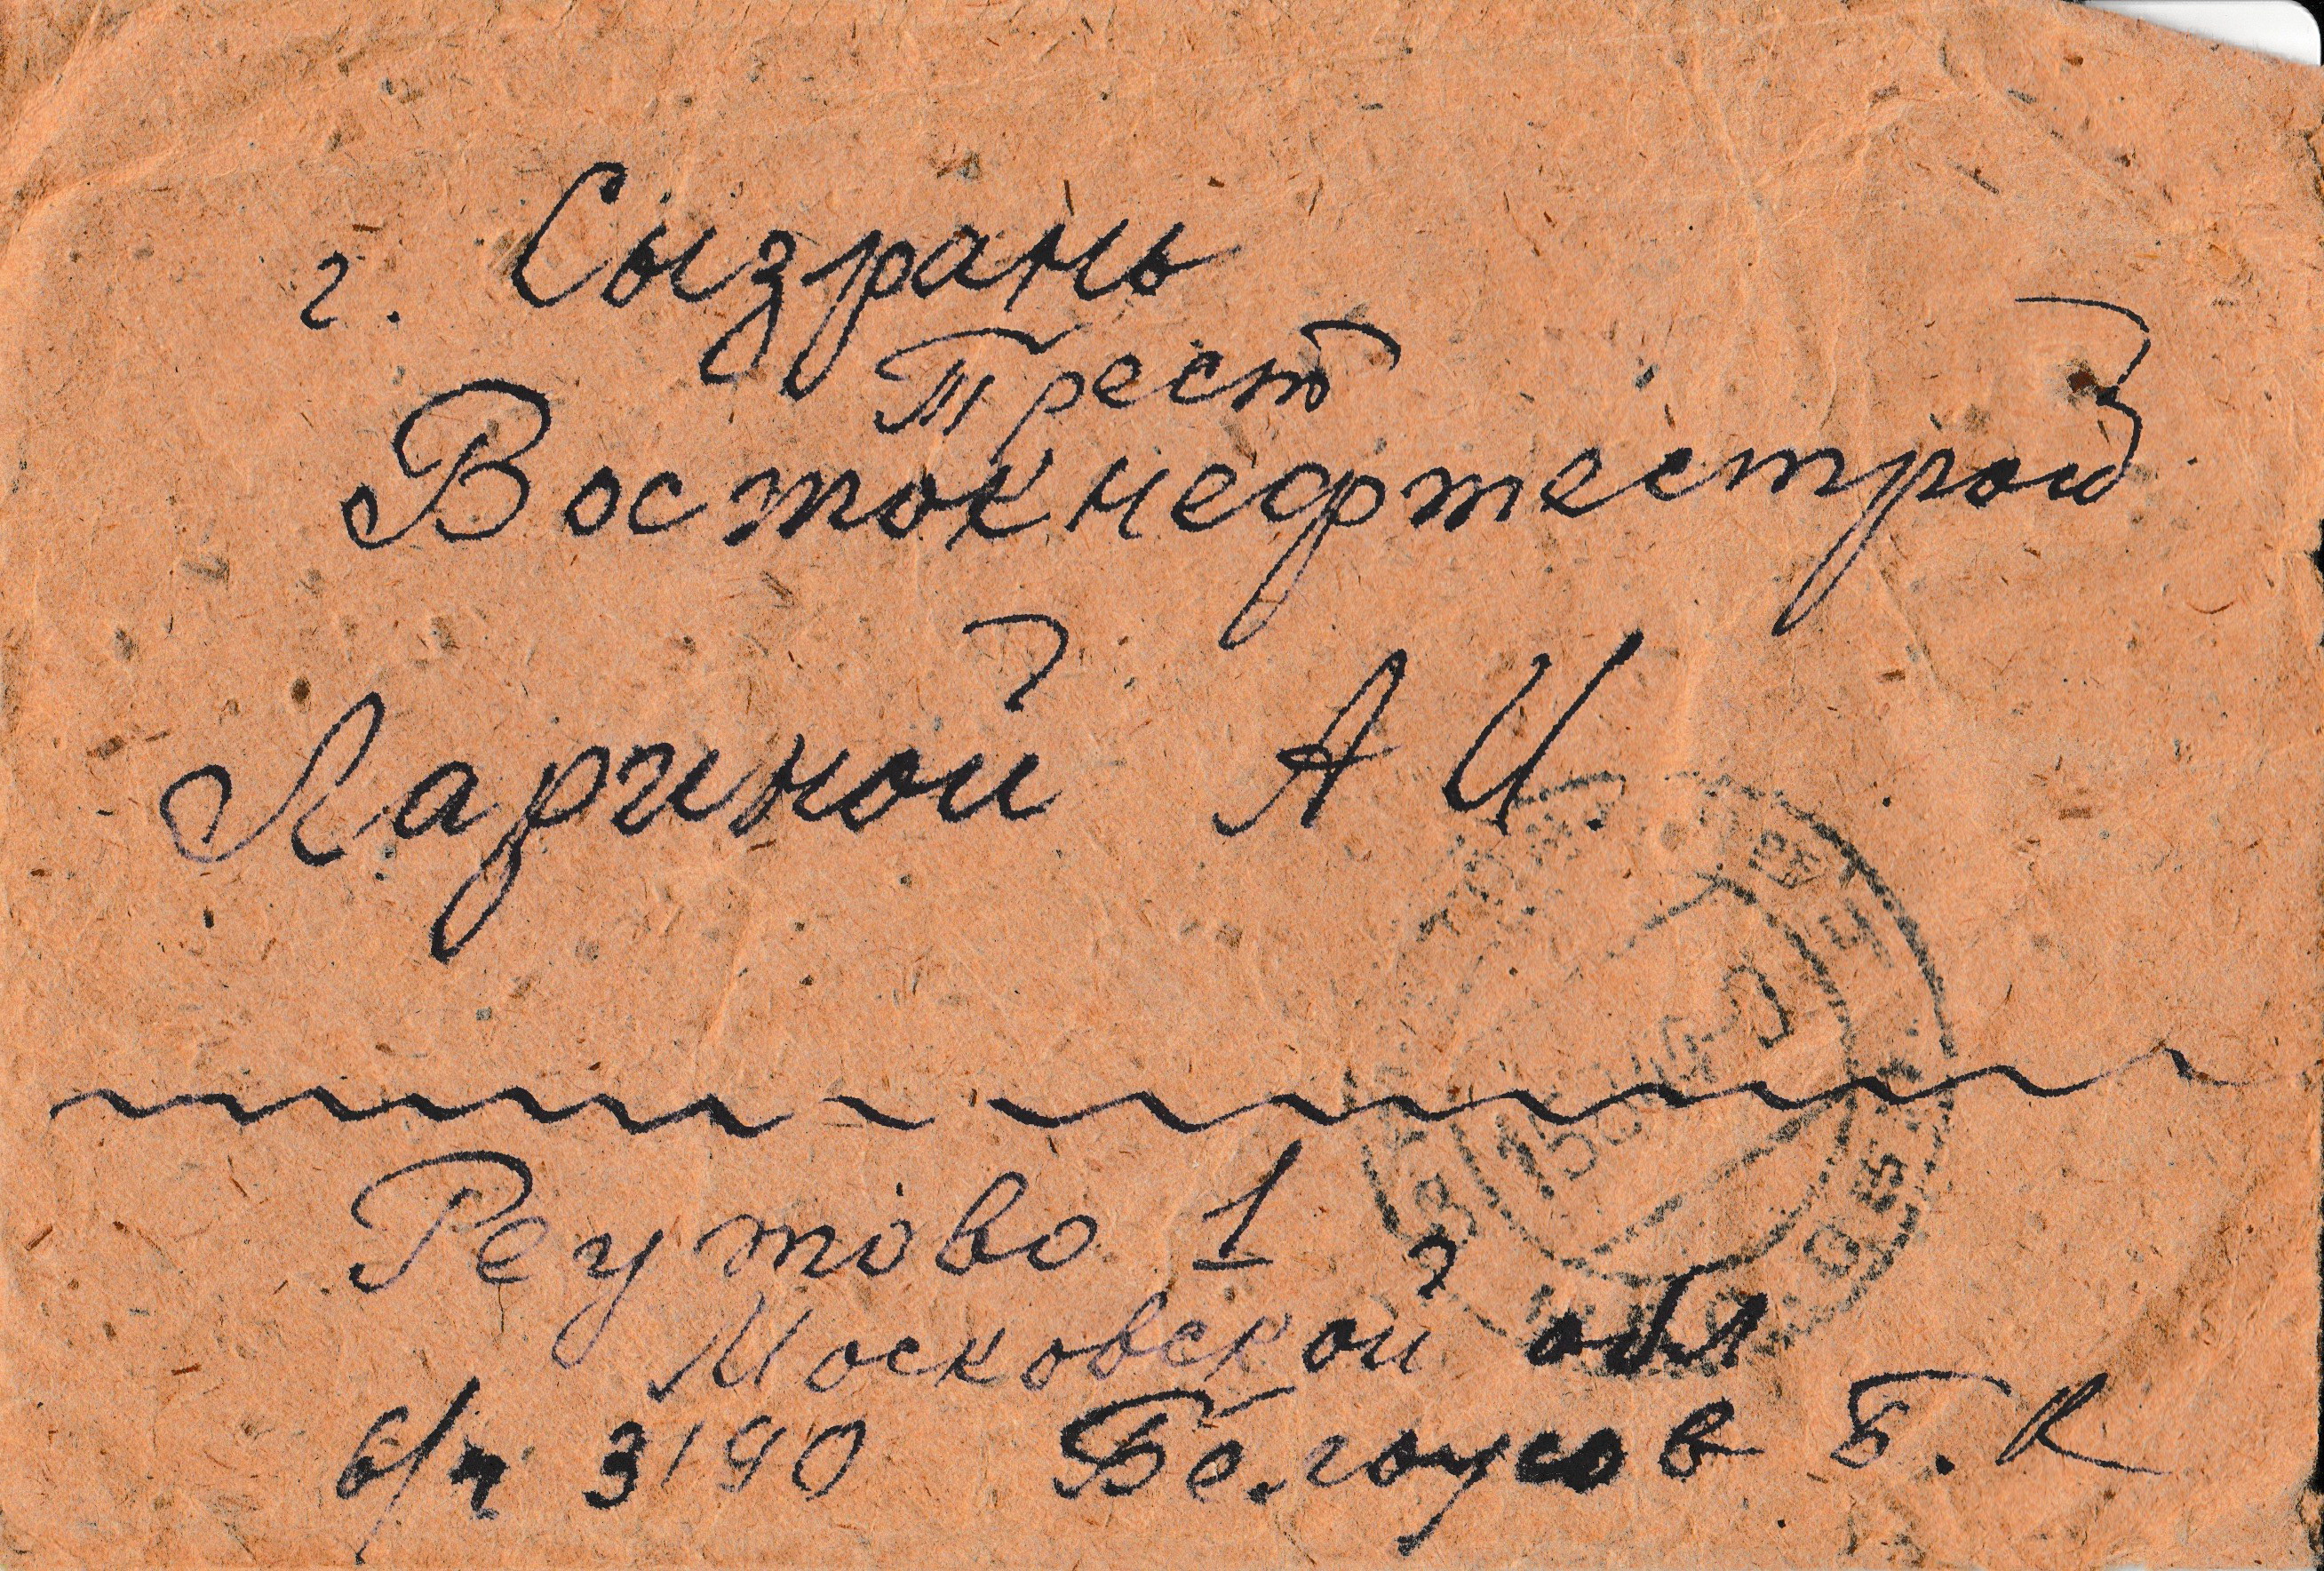 г. Сызрань
Трест
Востокнефтестрой
Лариной А И.
Реутово 1
Московской обл
в/ч 3190 Белоусов Б. К